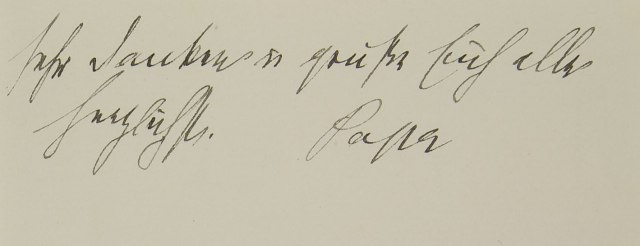 sehr danken u grüße Euch alle
herzlichst. Papa